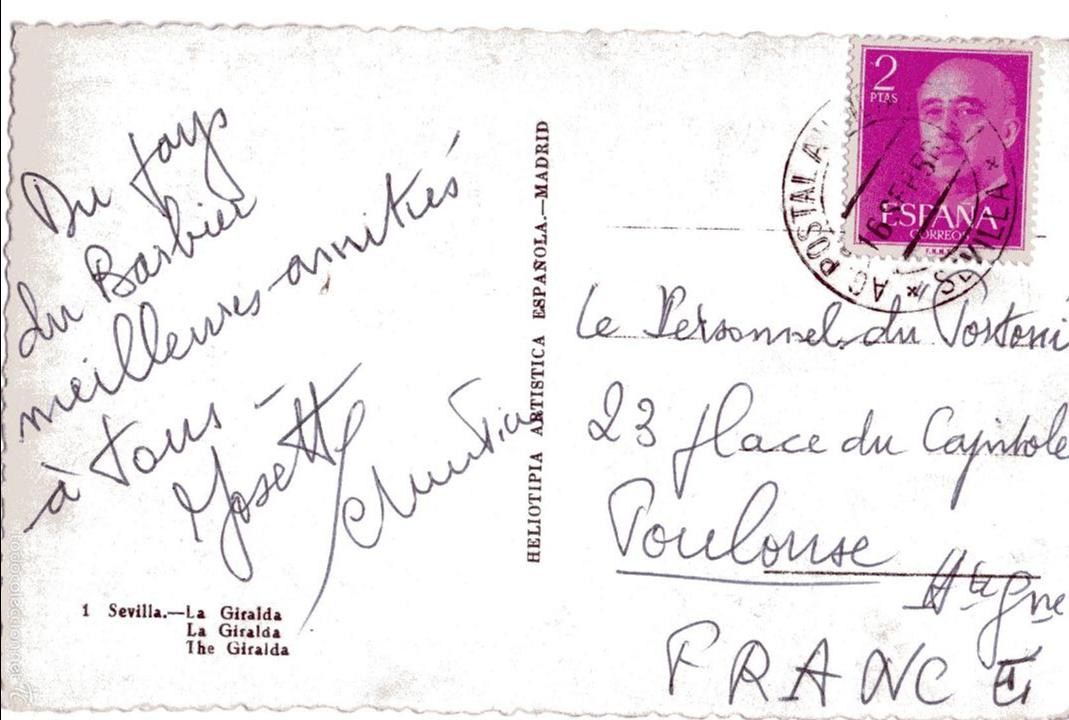 Du pays
du Barbier
meilleures amitiés
à tous -
Josette
1 Sevilla.—La Giralda
La Giralda
The Giralda
HELIOTIPIA ARTISTICA ESPAÑOLA.—MADRID
2
PTAS
ESPAÑA
CORREOS
AG. POSTAL A
SEVILLA
Le Personnel du
23 place du Capitole
Toulouse
Hte Gne
FRANCE
todocoleccion